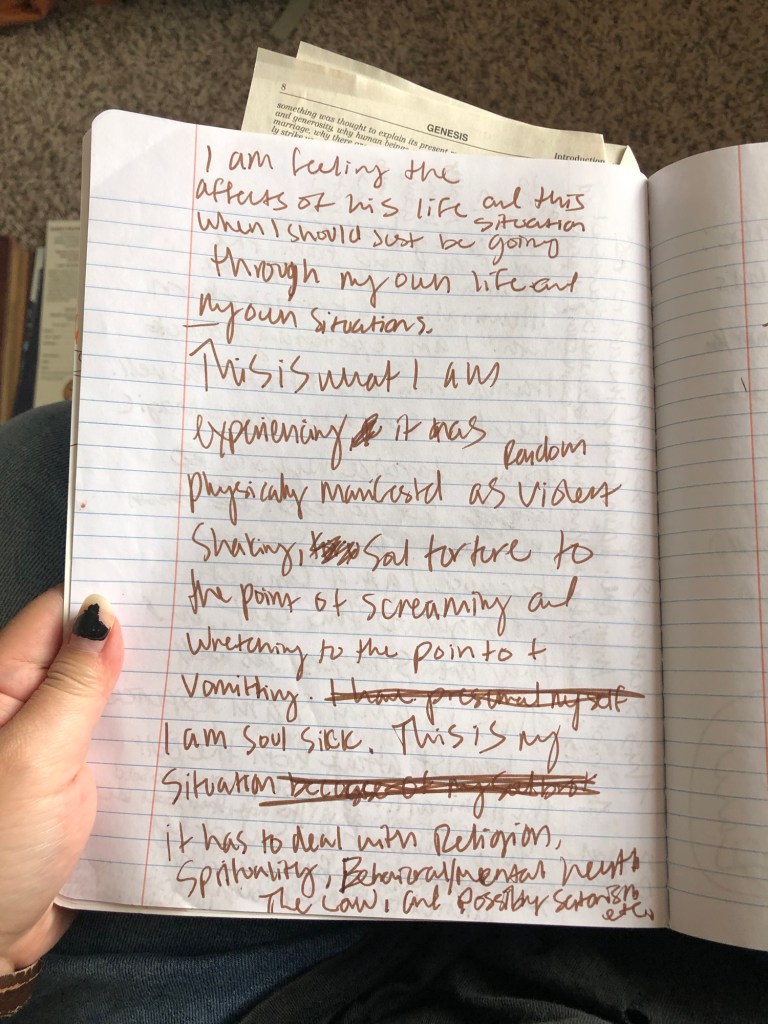 8
GENESIS
something was thought to explain its present
and generosity, why human beings
marriage, why there
ly strike
Introduction
I am feeling the
affects of his life and this
situation
when I should Just be going
through my own life and
my own situations.
This is what I am
experiencing it has
Random
physically manifested as violent
Shaking, Soul torture to
the point of screaming and
wretching to the point of
vomitting. I have presented myself
I am soul sick. This is my
situation because of my soul
it has to deal with Religion,
Spirituality, Behavioral/mental health
The Law, and possibly Satanism
etc.